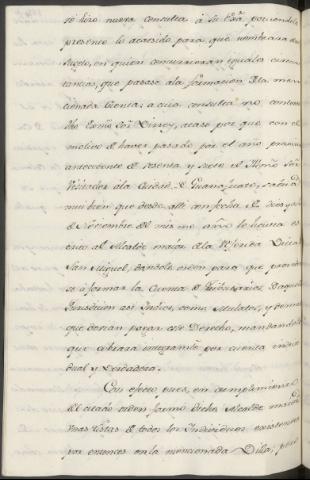 se hizo nueva consulta á su Exâ. poniendole
presente lo acaecido para que nombrara otro
Sugeto, en quien concurrieran iguales circuns
tancias, que pasase ala formacion dela men
cionada Cuenta; a cuia consulta no contexto
dho Exmô Sôr Virrey, acaso por que con el
motivo de haver pasado por el año proximo
antecedente de sesenta y siete el Yllmô Sôr
Visitador ála Ciudad de Guanajuato, sabia
mui bien que desde allí con fecha de diez y
de Noviembre del mismo año le havia es
crito al Alcalde maior dela Referida Villa
San Miguel, dandole orden para que procedie
se à formar la Cuenta de Tributarios de aquella
Jurisdicion asi Indios, como Mulatos, y demas
que devian pagar ese Derecho, mandandole
que cobrara integramte por cuenta indivi
dual y verdadera.
Con efecto pues, en cumplimiento
del citado orden formó dicho Alcalde maior
unas Listas de todos los Individuos existentes
por entonces en la mencionada Villa; pero